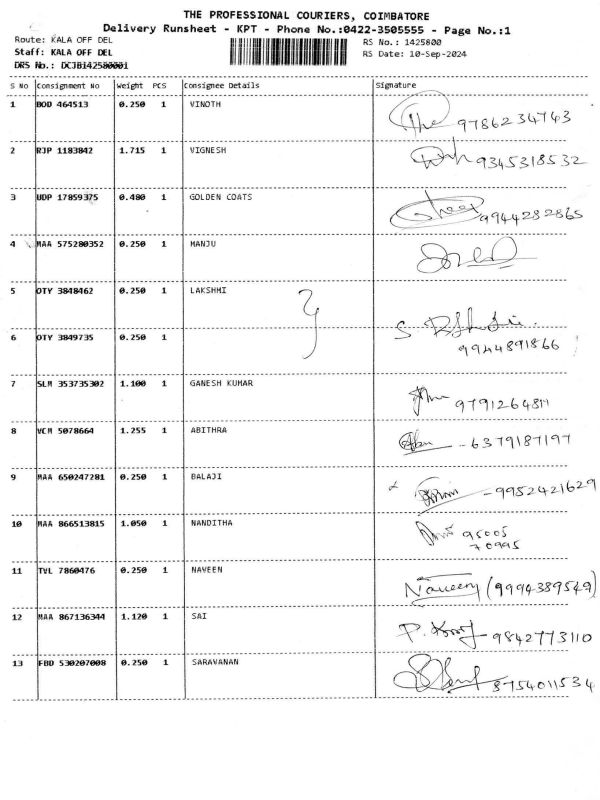 THE PROFESSIONAL COURIERS, COIMBATORE
Delivery Runsheet - KPT - Phone No.:0422-3505555 - Page No.:1
Route: KALA OFF DEL
RS No.: 1425800
Staff: KALA OFF DEL
RS Date: 10-Sep-2024
DRS No.: DCJB142580001
S No Consignment No Weight PCS Consignee Details Signature
1 BOD 464513 0.250 1 VINOTH
9786234743
2 RJP 1183842 1.715 1 VIGNESH
9345318532
3 UDP 17859375 0.480 1 GOLDEN COATS
9944282865
4 MAA 575280352 0.250 1 MANJU
5 OTY 3848462 0.250 1 LAKSHMI
6 OTY 3849735 0.250 1
9944891866
7 SLM 353735302 1.100 1 GANESH KUMAR
8 VCM 5078664 1.255 1 ABITHRA
- 6379187197
9 MAA 650247281 0.250 1 BALAJI
- 9952421629
10 MAA 866513815 1.050 1 NANDITHA
95005
70995
11 TVL 7860476 0.250 1 NAVEEN
Naveen (9994389549)
12 MAA 867136344 1.120 1 SAI
9842773110
13 FBD 530207008 0.250 1 SARAVANAN
8754011534